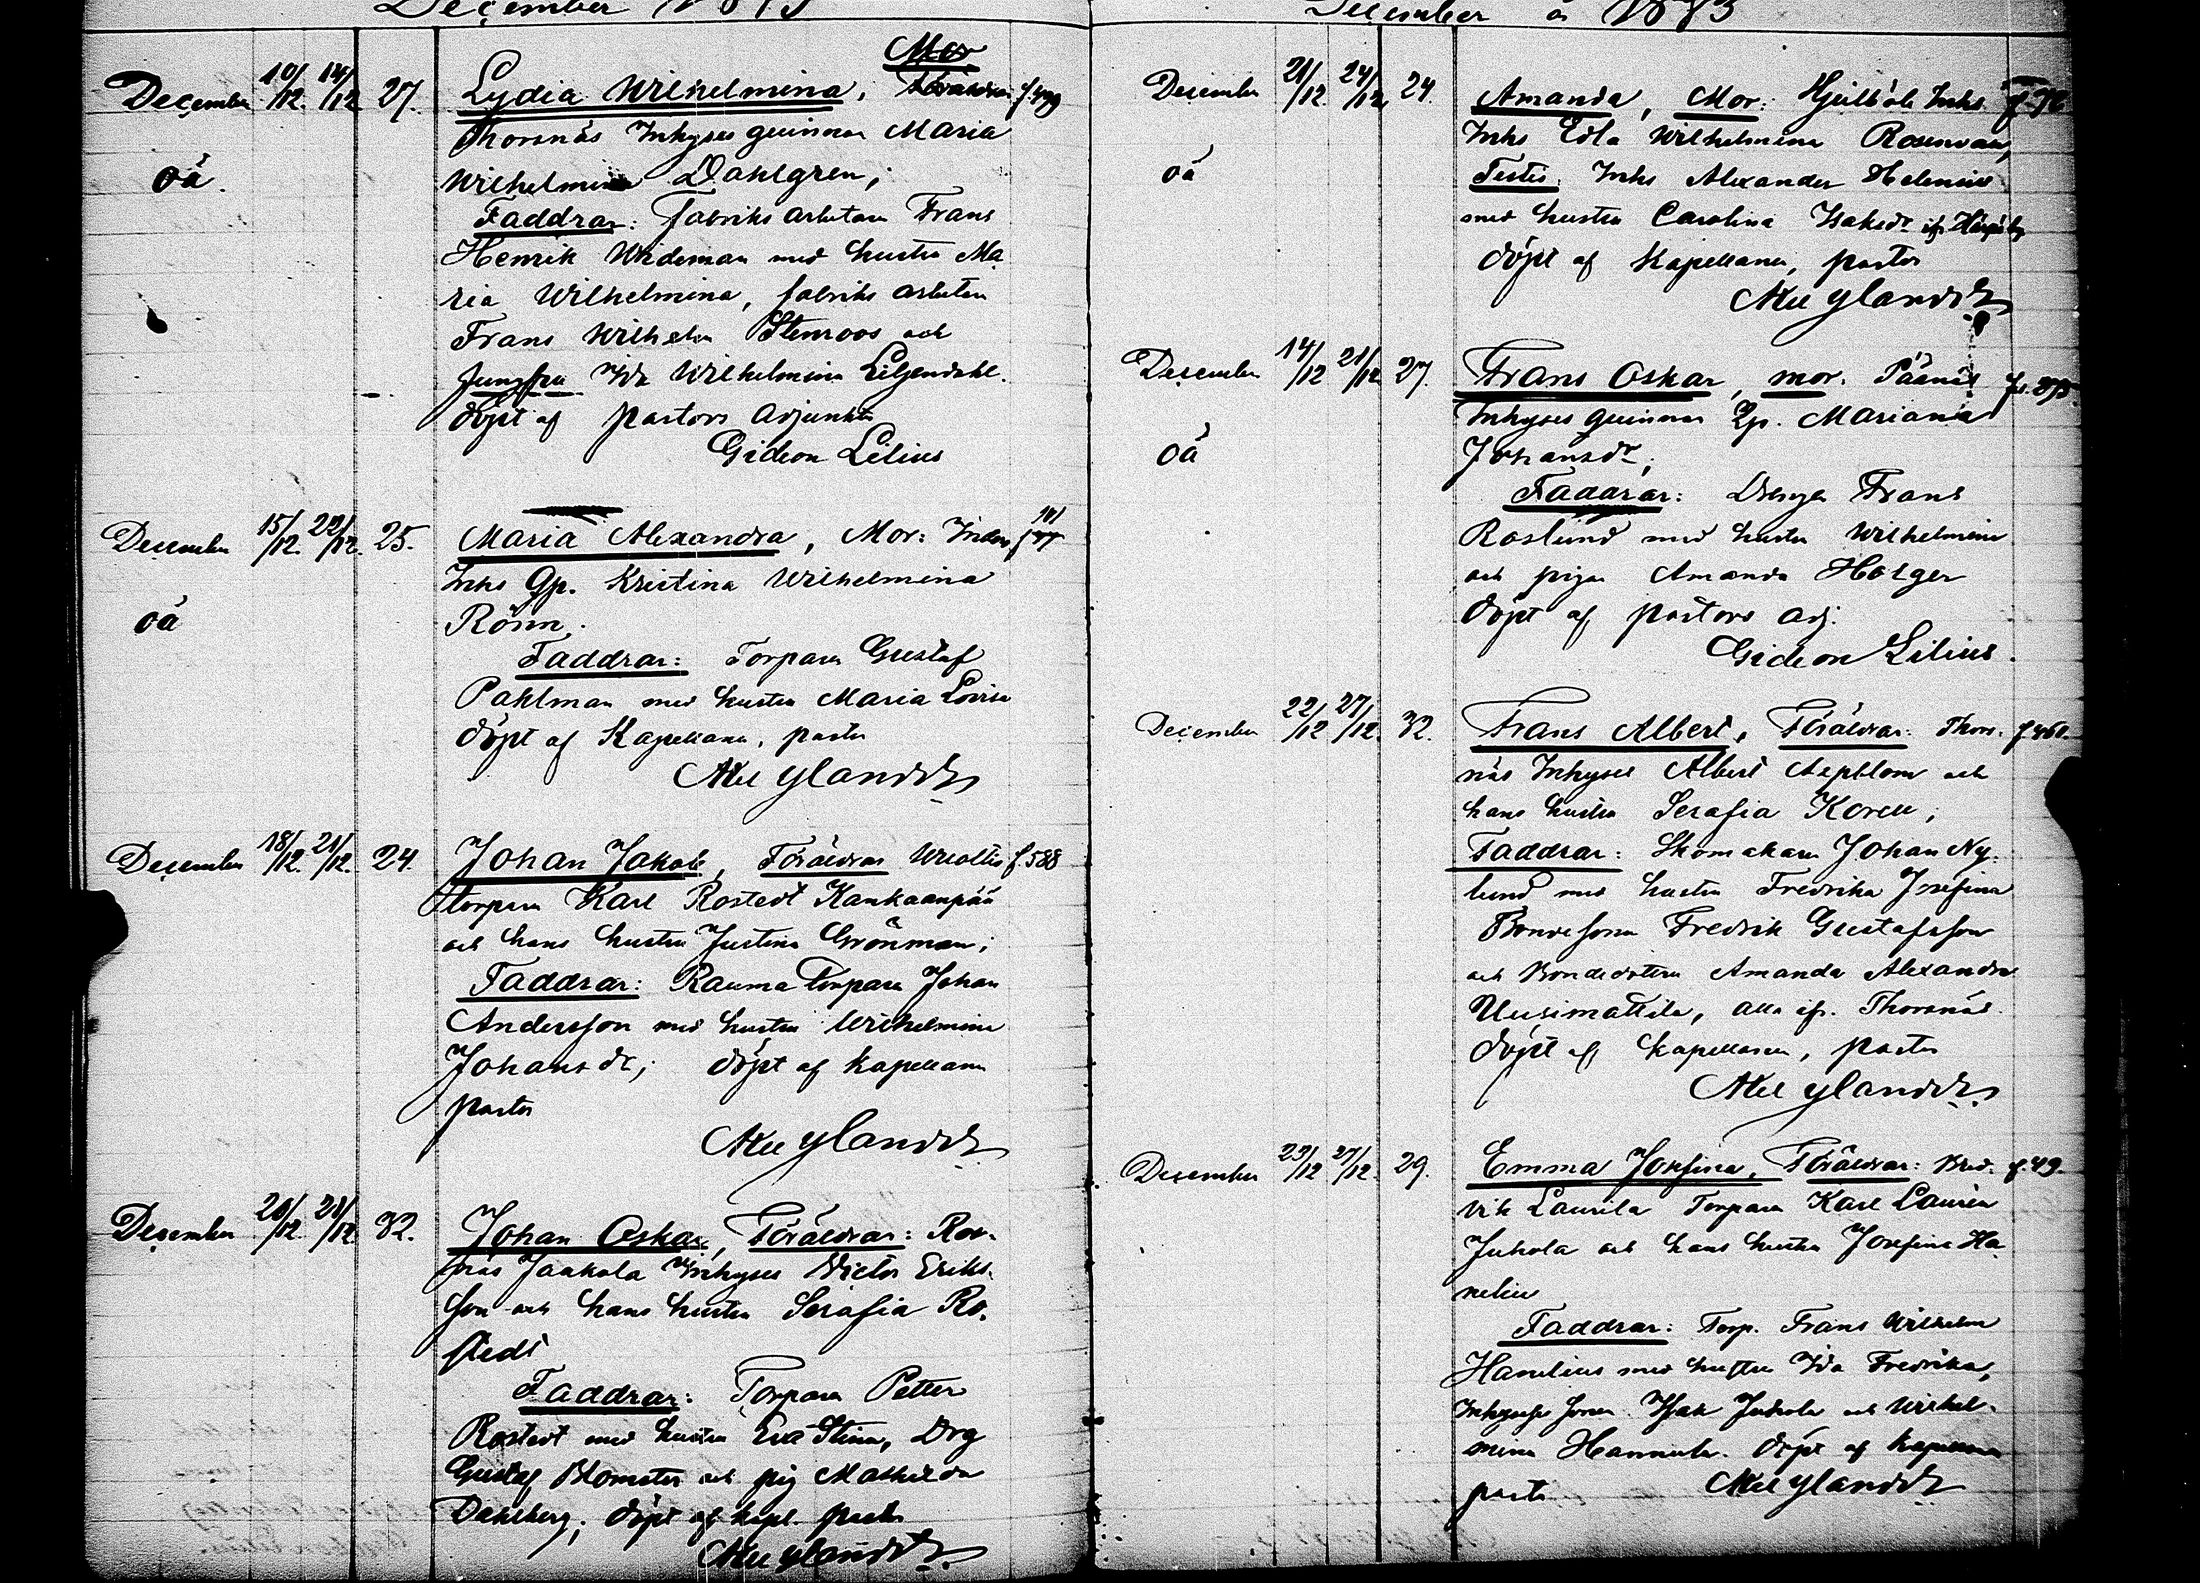 December
December 10/12 14/12 27. Lydia Wilhelmina, Mor Föräldrar f. 499
oä.
Thorsnäs Inhyses quinnan Maria
Wilhelmina Dahlgren,
Faddrar: fabriks arbetaren Frans
Henrik Wideman med hustru Ma
ria Wilhelmina, fabriks arbetaren
Frans Wilhelm Stenroos och
Jungfru Ida Wilhelmina Liljendahl.
döpt af pastors adjunkten
Gideon Lilius
December 15/12 22/12 25. Maria Alexandra, Mor:
oä
Inhs Gp. Kristina Wilhelmina
Rösen.
Faddrar: Torparen Gustaf
Pahlman med hustru Maria Lovisa
döpt af Kapellanen, pastor
Axel Ylander
December 18/12 21/12 24. Johan Jakob, Föräldrar f. 588
torparen Karl Rostedt Kankaanpää
och hans hustru Justina Grönman;
Faddrar: Rauma Torparen Johan
Andersson med hustru Wilhelmina
Johansdr; döpt af kapellanen
pastor
Axel Ylander
December 20/12 21/12 32. Johan Oskar, Föräldrar: Ror-
näs Jaakola Inhyses Victor Eriks-
son och hans hustru Serafia Ro-
stedt
Faddrar: Torparen Petter
Rostedt med hustru Eva Stina, Drg
Gustaf Blomster och pig Mathilda
Dahlberg; döpt af kapl. pastor
Axel Ylander
December å 1883
December 21/12 24/12 24. Amanda, Mor: Hjulböle Inhs
oä
Inhs Edla Wilhelmina
Testis: Inhs Alexander Helenius
med hustru Carolina Isaksdr ifr.
döpt af Kapellanen, pastor
Axel Ylander
December 14/12 21/12 27. Frans Oskar, mor. Påsnäs
oä
Inhyses quinnan Lp. Mariana
Johansdr;
Faddrar: Drengen Frans
Roslund med hustru Wilhelmina
och pigan Amanda Holger
döpt af pastors adj.
Gideon Lilius.
December 22/12 27/12. 32. Frans Albert, Föräldrar: Thors-
näs Inhyses Albert Aspblom och
hans hustru Serafia Korell;
Faddrar: Skomakaren Johan Ny-
lund med hustru Fredrika Josefina
Bondesonen Fredrik Gustafsson
och Bondedottren Amanda Alexandra
Uusimattila, alla ifr. Thorsnäs.
döpt af kapellanen, pastor
Axel Ylander.
December 23/12 27/12. 29. Emma Josefina, Föräldrar: Bred- f. 49.
vik Laurila Torparen Karl Laurén
Juhola och hans hustru Josefina Ha
nelius
Faddrar: Torp. Frans Wilhelm
Hanelius med hustru Ida Fredrika,
Inhyses sonen Isak Juhola och Wilhel-
mina Hannula. döpt af kapellanen
pastor Axel Ylander